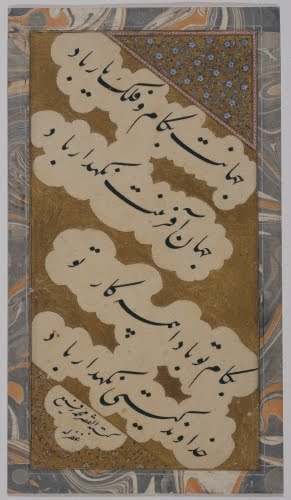 جهانت بکام و فلک یار باد
جهان آفرینت نگهدار باد
بکام تو بادا همه کار تو
خداوند گیتی نگهدار باد